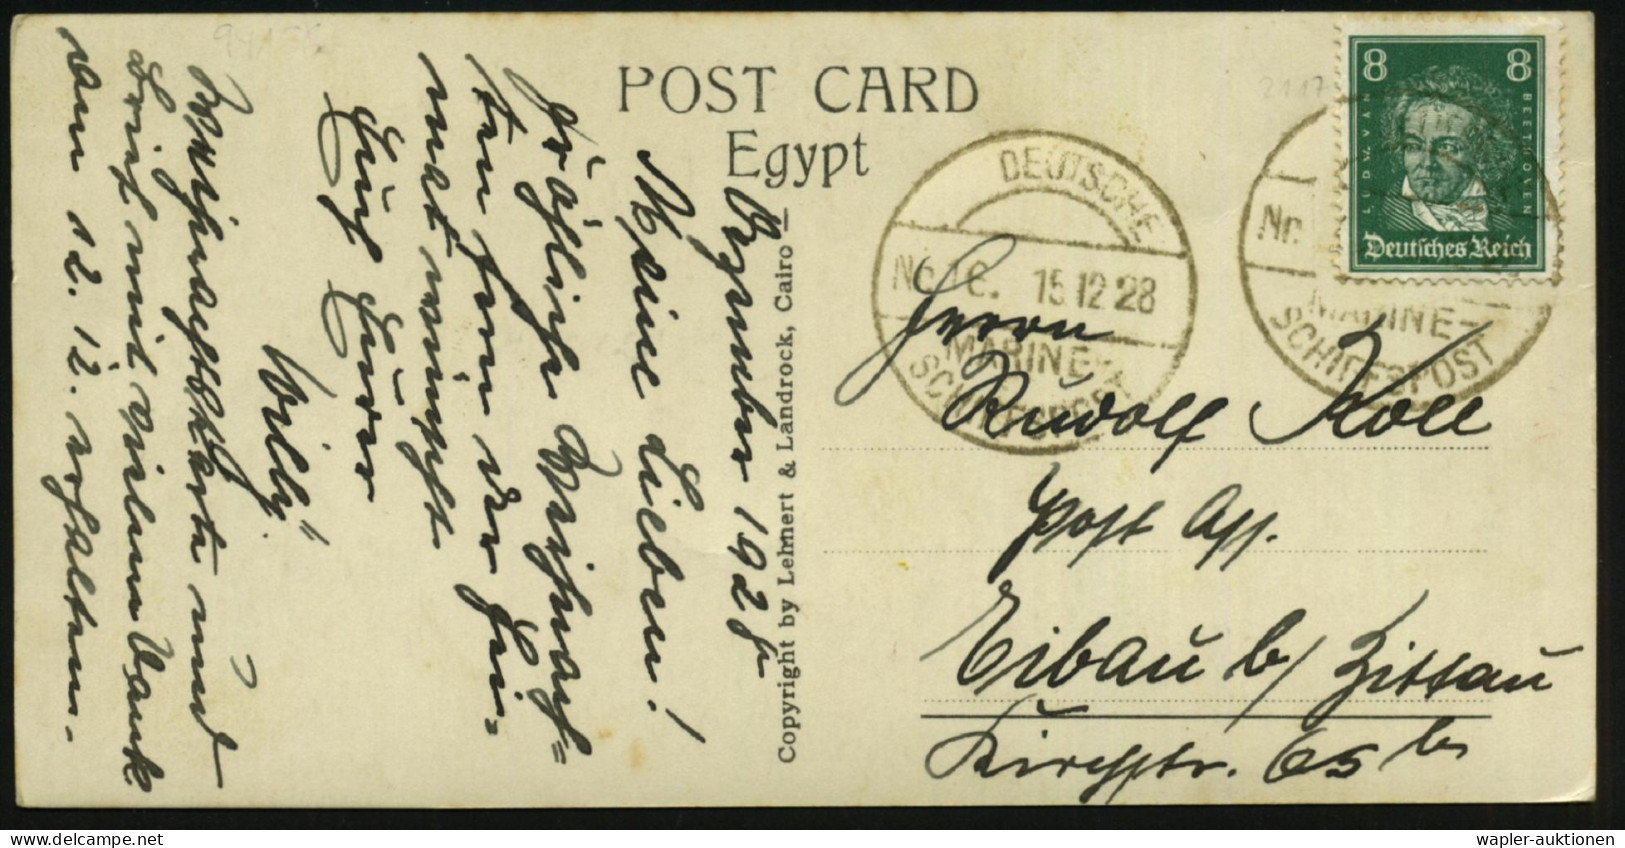 94 18K
POST CARD
Egypt
Copyright by Lehnert & Landrock, Cairo
2117
8 8
LUDW. VAN BEETHOVEN
Deutsches Reich
DEUTSCHE
15 12 28
MARINE-
SCHIFFSPOST
Nr.
MARINE-
SCHIFFSPOST
Dezember 1928
Meine Lieben!
Fröhliche Weihnach=
ten fern der Hei=
mat wünscht
Euch Euer
Willy
Weihnachtskarte und
Brief mit vielem Dank
am 12. 12. erhalten.
Herrn
Rudolf Koll
Post Ass.
Eibau b/ Zittau
Kirchstr. 65 b
wapler-auktionen